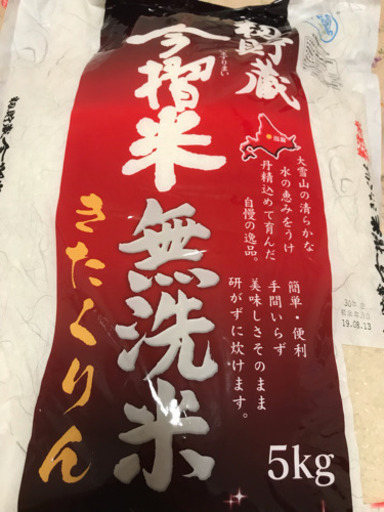 籾貯蔵
今摺米
いまずりまい
無洗米
きたくりん
大雪山の清らかな
水の恵みをうけ
丹精込めて育んだ
自慢の逸品。
簡単・便利
手間いらず
美味しさそのまま
研がずに炊けます。
5kg
30年産
19.08.13